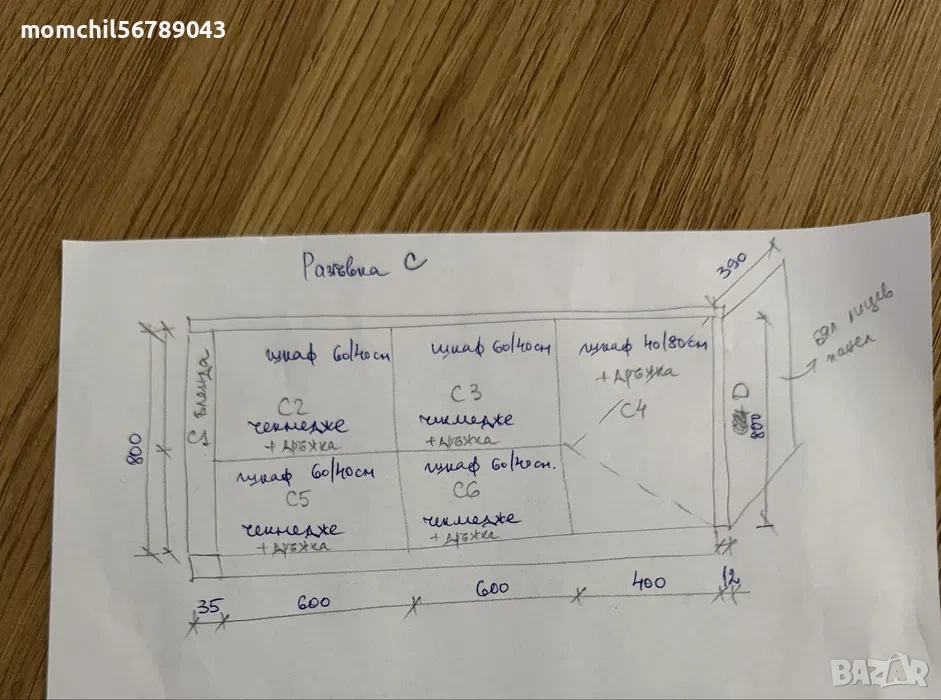 momchil56789043
Разъвка C
390
бял лицев
панел
C1 бленда
шкаф 60/40см
C2
чекмедже
+ дръжка
шкаф 60/40см
C3
чекмедже
+ дръжка
шкаф 40/80см
+ дръжка
C4
D
800
800
шкаф 60/40см
C5
чекмедже
+ дръжка
шкаф 60/40см.
C6
чекмедже
+ дръжка
35
600
600
400
12
BAZAR